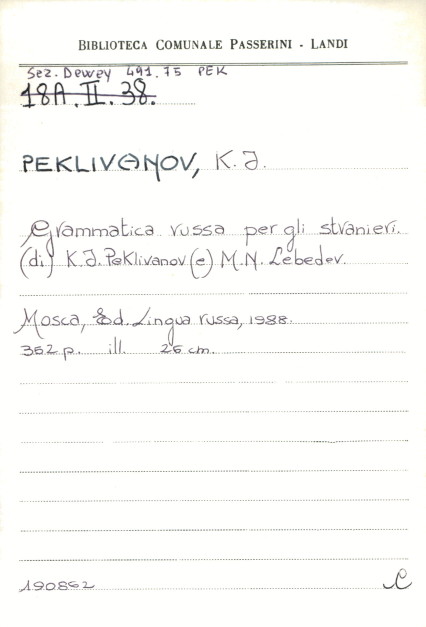 BIBLIOTECA COMUNALE PASSERINI - LANDI
Sez. Dewey 491.75 PEK
18A.II.38.
PEKLIVANOV, K.J.
Grammatica russa per gli stranieri.
(di) K.J. Peklivanov (e) M.N. Lebedev.
Mosca, Ed. Lingua russa, 1988.
352 p. ill. 26 cm.
190862